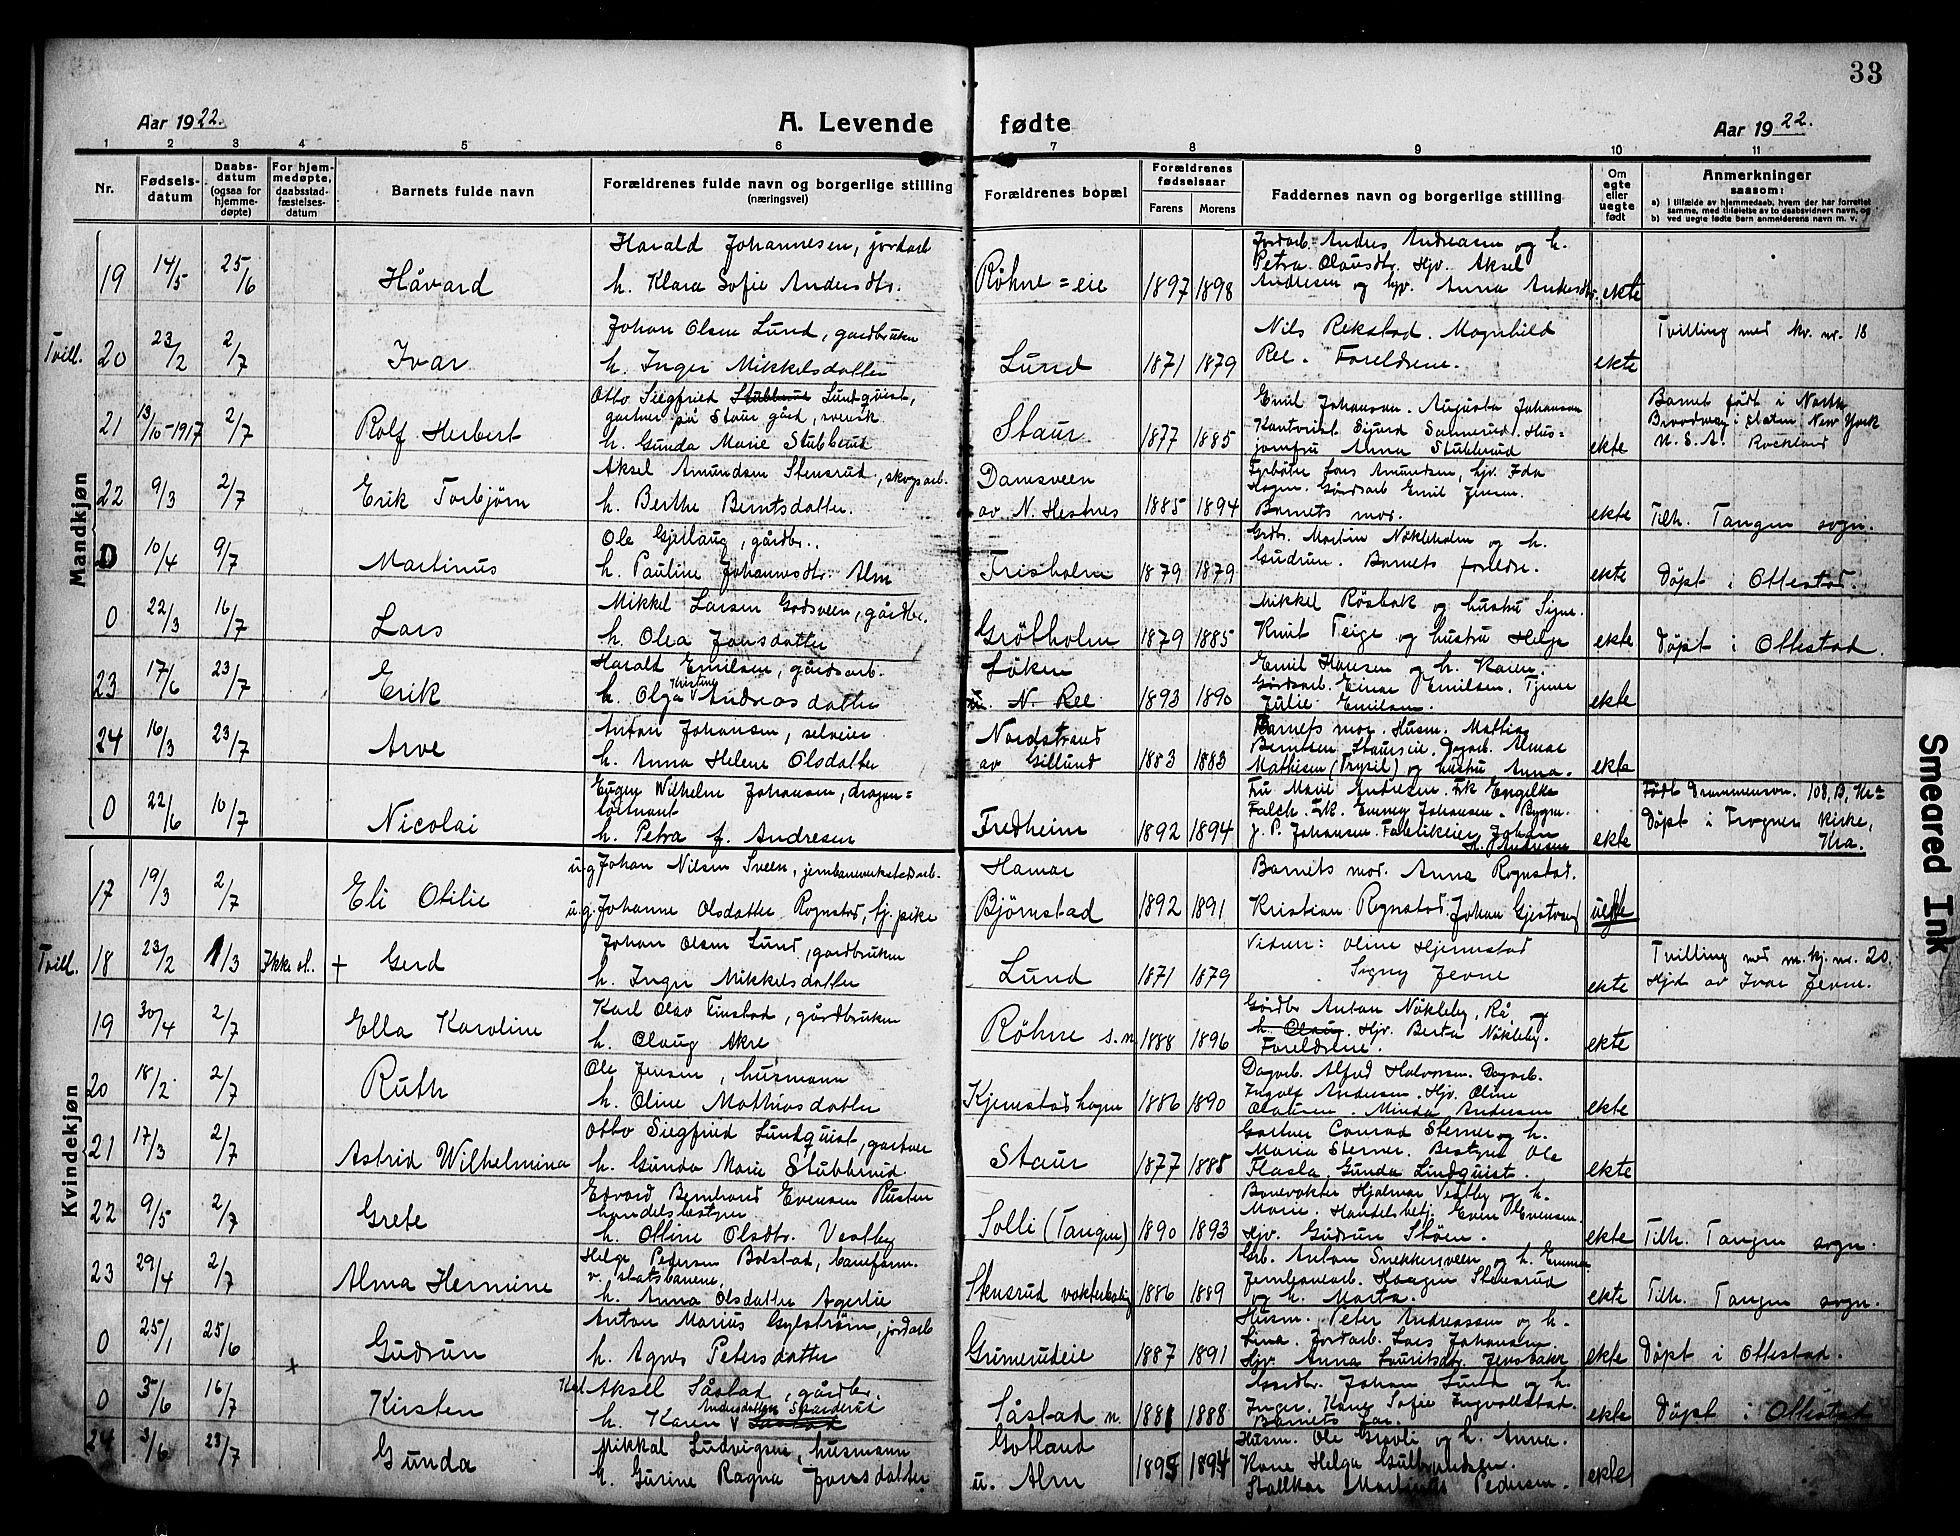 33
Aar 1922.
A. Levende fødte
Aar 1922.
1 2 3 4 5 6 7 8 9 10 11
Nr.
Fødsels-
datum
Daabs-
datum
(ogsaa for
hjemme-
døpte)
For hjem-
medøpte,
daabsstad-
fæstelses-
datum
Barnets fulde navn
Forældrenes fulde navn og borgerlige stilling
(næringsvei)
Forældrenes bopæl
Forældrenes
fødselsaar
Farens Morens
Faddernes navn og borgerlige stilling
Om
egte
eller
uegte
født
Anmerkninger
saasom:
a) I tilfælde av hjemmedaab, hvem der har forrettet
samme, med tilføielse av to daabsvidners navn, og
b) ved uegte fødte børn anmelderens navn m. v.
Mandkjøn
19 14/5 25/6 Håvard
Harald Johannesen, jordarb.
h. Klara Sofie Andersdtr.
Røhne=eie 1897 1898
Jordarb. Andres Andreasen og h.
Petra Olausdtr. Hjv. Aksel
Andresen og hjv. Anna Andersdtr.
ekte
Tvill. 20 23/2 2/7 Ivar
Johan Olsen Lund, gardbruker
h. Inger Mikkelsdatter
Lund 1871 1879
Nils Rekstad. Magnhild
Ree. Foreldrene.
ekte
Tvilling med kv. nr. 18
21 13/10-1917 2/7 Rolf Herbert
Otto Siegfried Stubberud Lundquist,
gartner på Staur gård, svensk
h. Gunda Marie Stubberud
Staur 1877 1885
Emil Johansen. Augusta Johansen
Kontorist Sigurd Sannerud. Hus=
jomfru Anna Stubberud
ekte
Barnet født i North
Broadway i staten New York
U.S.A. Rockland
22 9/3 2/7 Erik Torbjørn
Aksel Amundsen Stensrud, skogsarb.
h. Berthe Berntsdatter.
Damsveen
av N. Hestnes 1885 1894
Fyrbøter Lars Amundsen, hjv. Ida
Hagen. Gårdsarb Emil Jensen.
Barnets mor.
ekte
Tilh. Tangen sogn.
0 10/4 9/7 Martinus
Ole Gjetlaug, gårdbr.
h. Pauline Johannesdtr. Alm
Frisholm 1879 1879
Grdbr. Martin Nökleholm og h.
Gudrun. Barnets foreldre.
ekte
Døpt i Ottestad.
0 22/3 16/7 Lars
Mikkel Larsen Godsveen, gårdbr.
h. Olea Jensdatter
Grøtholm 1879 1885
Mikkel Røsbak og hustru Signe.
Knut Teige og hustru Helga
ekte
Døpt i Ottestad.
23 17/6 23/7 Erik
Harald Emilsen, gårdsarb.
h. Olga Kristine Andreasdatter
Løken
N. Ree 1893 1890
Emil Hansen og h. Karen.
Gårdsarb. Einar Emilsen. Tjener
Julie Emilsen.
ekte
24 16/3 23/7 Arve
Anton Johansen, selveier
h. Anna Helene Olsdatter
Nordstrand
av Gillund 1883 1883
Barnets mor. Husm. Mathias
Berntsen Staurseie. Dagarb. Almar
Mathisen (Trysil) og hustru Anna.
ekte
0 22/6 10/7 Nicolai
Eugen Wilhelm Johansen, dragon=
løitnant
h. Petra f. Andresen
Fredheim 1892 1894
Fru Marie Andresen. Frk Engelke
Falch. Frk. Emmy Johansen. Bygm.
J. P. Johansen. Fabrikeier Johan
H. Andresen
ekte
Født Drammensvn. 108, B, Kra
Døpt i Frogner kirke,
Kra.
Kvindekjøn
17 19/3 2/7 Eli Otilie
u.g. Johan Nilsen Sveen, jernbaneverkstedarb.
u.g. Johanne Olsdatter Rognstad, tj. pike
Hamar
Bjørnstad 1892 1891
Barnets mor. Anna Rognstad.
Kristian Rognstad. Johan Gjestvang
uekte
Tvill. 18 23/2 1/3 Ikke st. + Gerd
Johan Olsen Lund, gardbruker
h. Inger Mikkelsdatter
Lund 1871 1879
Vidner: Oline Hjemstad
Signy Jevne
ekte
Tvilling med m.kj. nr. 20.
Hjd av Ivar Jevne.
19 30/4 2/7 Ella Karoline
Karl Olav Finstad, gårdbruker
h. Olaug Akre
Røhne s.m 1888 1896
Gårdbr Anton Nökleby, Rå og
h. Olaug. Hjv. Berta Nökleby.
Foreldrene.
ekte
20 18/2 2/7 Ruth
Ole Jensen, husmann
h. Oline Mathiasdatter
Kjemstadhagen 1886 1890
Dagarb. Alfred Halvorsen. Dagarb.
Ingolf Andersen. Hjv. Oline
Olausen. Minda Andersen
ekte
21 17/3 2/7 Astrid Wilhelmina
Otto Siegfried Lundquist, gartner
h. Gunda Marie Stubberud
Staur 1877 1885
Gartner Conrad Sterner og h.
Maria Sterner. Bestyrer Ole
Flasla. Gunda Lindquist.
ekte
22 9/5 2/7 Grete
Edvard Bernhard Evensen Rusten
handelsbestyrer
h. Otline Olsdtr. Vestby
Solli (Tangen) 1890 1893
Banevokter Hjalmar Vestby og h.
Marie. Handelsbetj. Even Evensen.
Hjv. Gudrun Støen.
ekte
Tilh. Tangen sogn.
23 29/4 2/7 Alma Hermine
Helge Pedersen Bolstad, baneform.
v. statsbanene,
h. Anna Olsdatter Agerlie
Stensrud vokterbolig 1886 1889
Grb. Anton Snekkersveen og h. Emma
Jernbanearb. Haagen Stensrud
og h. Marta.
ekte
Tilh. Tangen sogn.
0 25/1 25/6 Gudrun
Anton Marius Gylstrøm, jordarb
h. Agnes Petersdatter
Grimerudeie 1887 1891
Husm. Peter Andreassen og h.
Lina. Jordarb. Lars Johansen
Hjv. Anna Lauritsdtr. Jensbakk
ekte
Døpt i Ottestad.
0 3/6 16/7 Kirsten
Aksel Såstad, gårdbr.
h. Karen Andersdatter Skaderud
Såstad n. 1881 1888
Gårdbr. Johan Lund og h.
Inger. Kone Sofie Ingvoldstad.
Barnets far.
ekte
Døpt i Ottestad
24 3/6 23/7 Gunda
Mikkal Ludvigsen, husmann
h. Gurine Ragna Jonsdatter
Gotland
u. Alm 1895 1894
Husm. Ole Gravli og h. Anna.
Kone Helga Gulbrandsen.
Stallkar Martinus Pedersen.
ekte
Smeared Ink